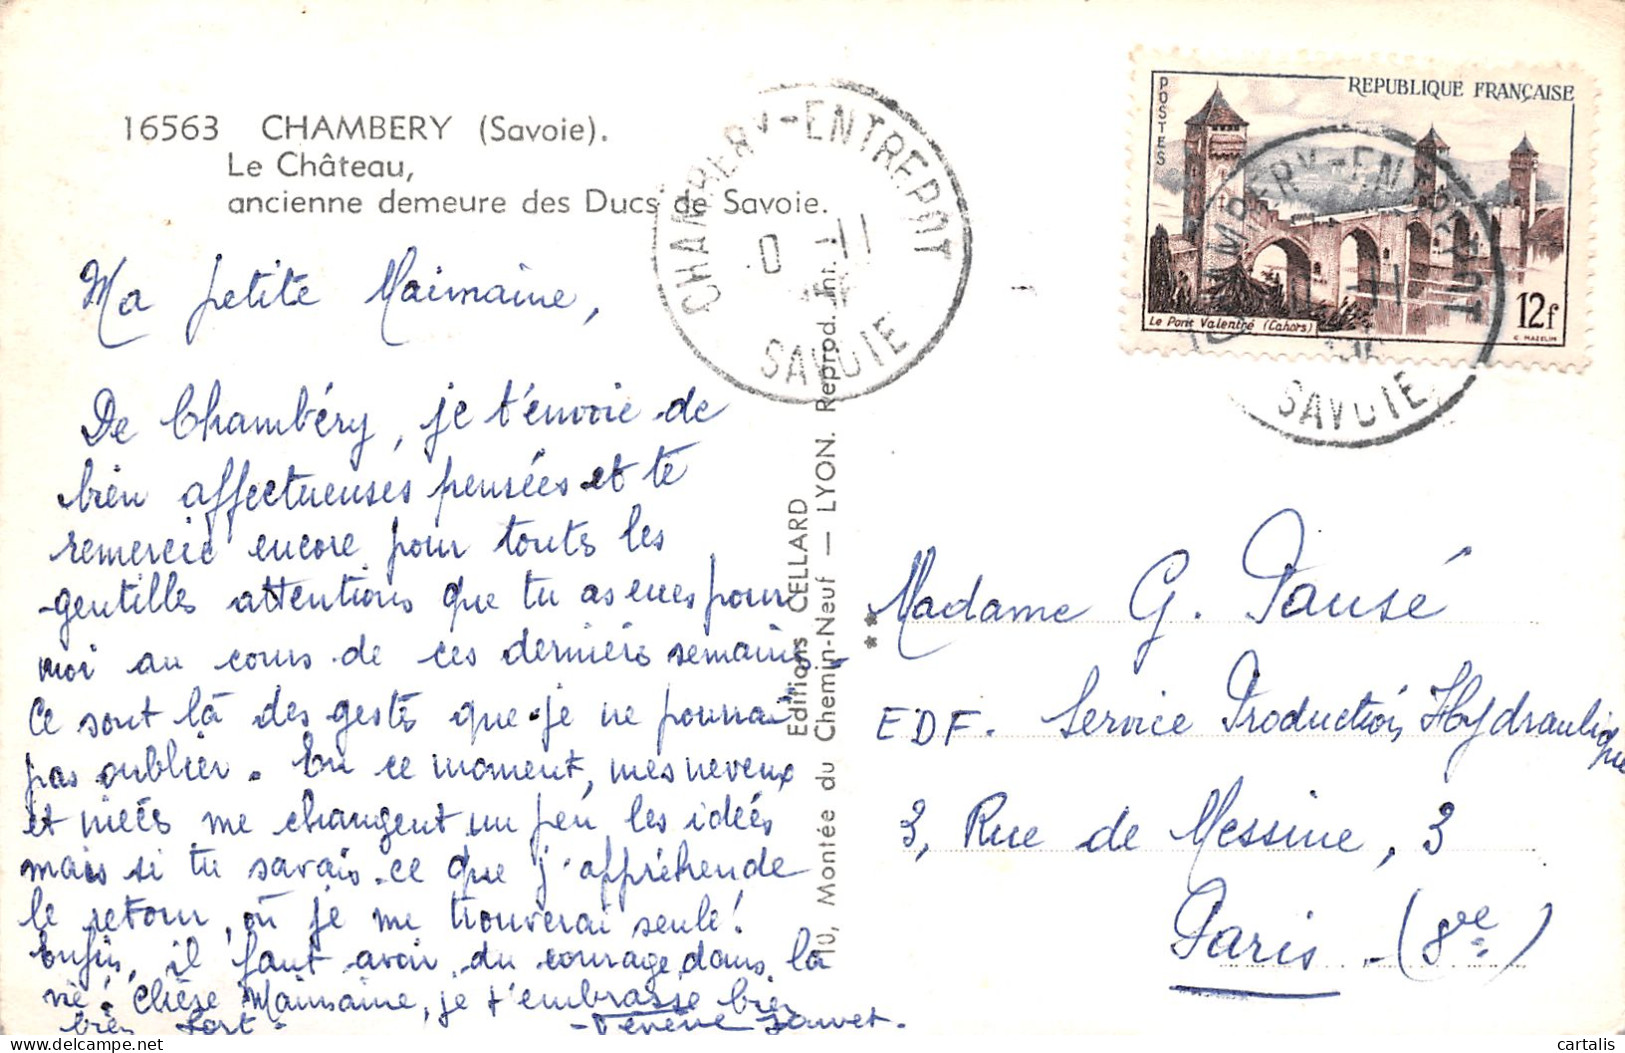 16563 CHAMBERY (Savoie).
Le Château,
ancienne demeure des Ducs de Savoie.
CHAMBERY-ENTREPOT
SAVOIE
POSTES
REPUBLIQUE FRANÇAISE
Le Pont Valentré (Cahors)
12f
C. MAZELIN
CHAMBERY-ENTREPOT
SAVOIE
Ma petite Maimaine,
De Chambéry, je t'envoie de
bien affectueuses pensées et te
remercie encore pour toutes les
gentilles attentions que tu as eues pour
moi au cours de ces dernières semaines
Ce sont là des gestes que je ne pourrai
pas oublier. En ce moment, mes neveux
et nièces me changent un peu les idées
mais si tu savais ce que j'appréhende
le retour, où je me trouverai seule!
Enfin, il faut avoir du courage dans la
vie! Chère Maimaine, je t'embrasse bien
bien fort -
Editions CELLARD
10, Montée du Chemin-Neuf — LYON. Reprod. Int.
**
Madame G. Pausé
EDF. Service Production Hydraulique
3, Rue de Messine, 3
Paris - (8ve)
delcampe.net
cartalis